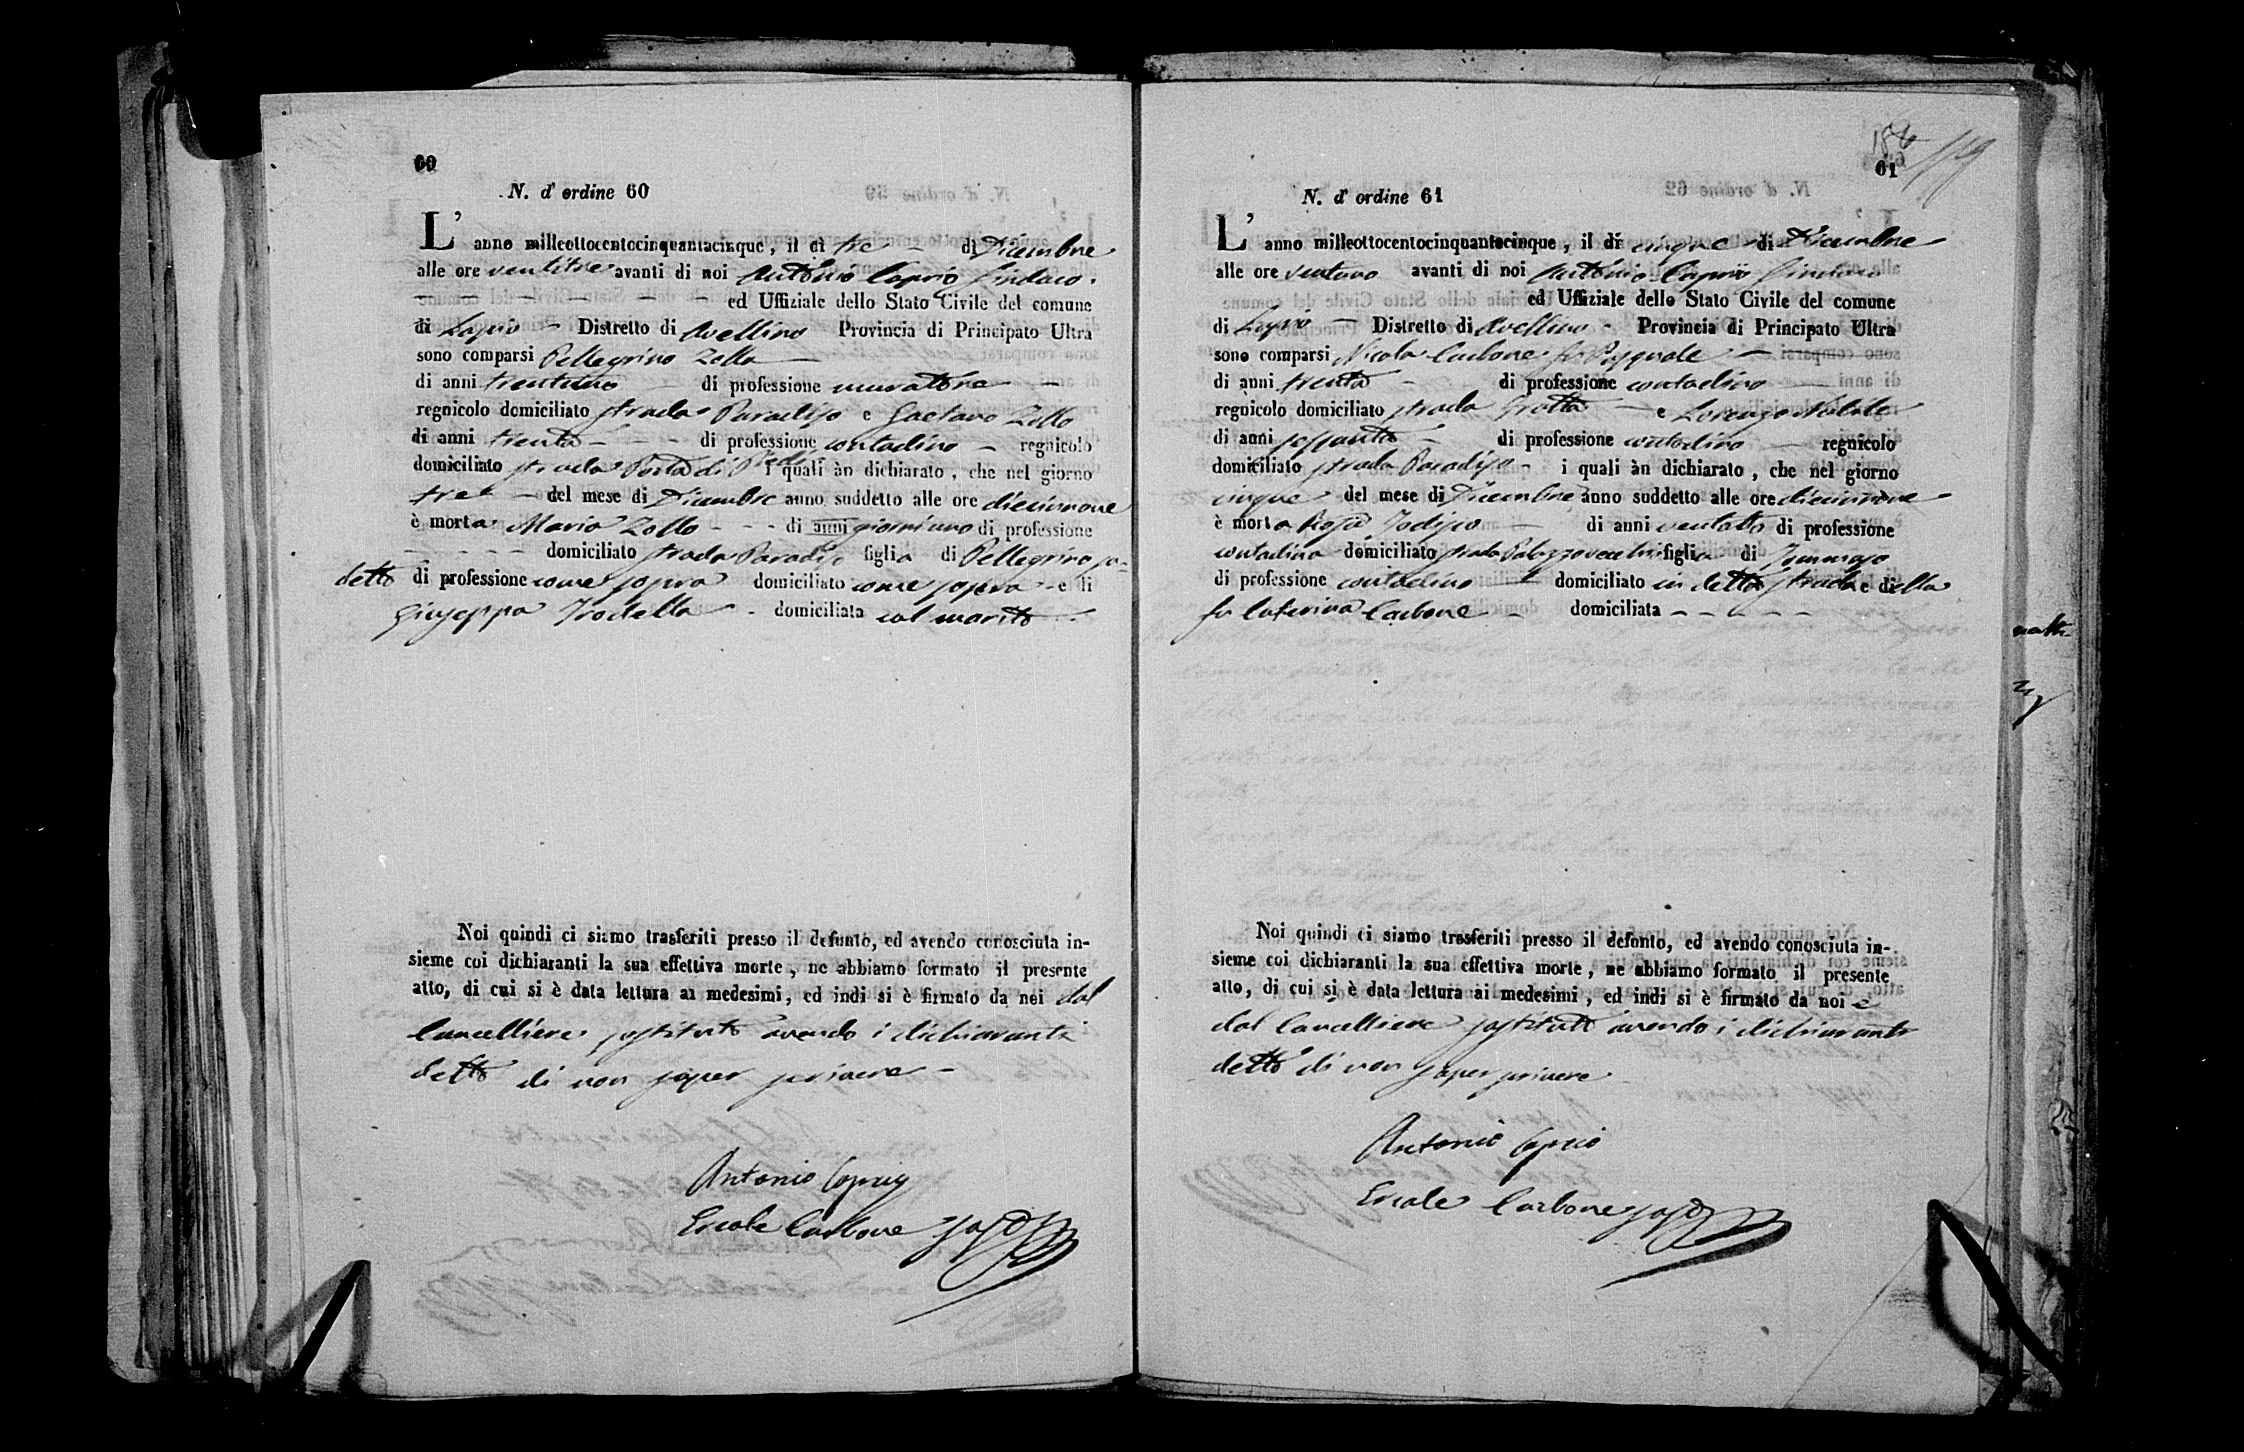 60
N. d' ordine 60
L' anno milleottocentocinquantacinque, il dì tre di Dicembre
alle ore ventitre avanti di noi Antonio Caprio Sindaco.
ed Uffiziale dello Stato Civile del comune
di Lapio Distretto di Avellino Provincia di Principato Ultra
sono comparsi Pellegrino Zollo
di anni trentuno di professione muratore
regnicolo domiciliato strada Paradiso e Gaetano Zollo
di anni trenta di professione contadino regnicolo
domiciliato strada Porta di i quali àn dichiarato, che nel giorno
tre del mese di Dicembre anno suddetto alle ore diecinnove
è morta Maria Zollo di anni giorni uno di professione
domiciliato strada Paradiso figlia di Pellegrino so-
detto di professione come sopra domiciliato come sopra e di
Giuseppa Trodella domiciliata col marito
Noi quindi ci siamo trasferiti presso il defunto, ed avendo conosciuta in-
sieme coi dichiaranti la sua effettiva morte, ne abbiamo formato il presente
atto, di cui si è data lettura ai medesimi, ed indi si è firmato da noi dal
Cancelliere sostituto avendo i dichiaranti
detto di non saper scrivere
Antonio Caprio
Ercole Carbone
61
N. d' ordine 61
L' anno milleottocentocinquantacinque, il dì cinque di Dicembre
alle ore ventuno avanti di noi Antonio Caprio Sindaco
ed Uffiziale dello Stato Civile del comune
di Lapio Distretto di Avellino Provincia di Principato Ultra
sono comparsi Nicola Carbone fu Pasquale
di anni trenta di professione contadino
regnicolo domiciliato strada Grotta e Lorenzo Nobile
di anni sessanta di professione contadino regnicolo
domiciliato strada Paradiso i quali àn dichiarato, che nel giorno
cinque del mese di Dicembre anno suddetto alle ore diecinnove
è morta Rosa Iodiso di anni ventotto di professione
contadina domiciliato strada figlia di Tommaso
di professione contadino domiciliato in detta strada e di ella
fu Caterina Carbone domiciliata
Noi quindi ci siamo trasferiti presso il defonto, ed avendo conosciuta in-
sieme coi dichiaranti la sua effettiva morte, ne abbiamo formato il presente
atto, di cui si è data lettura ai medesimi, ed indi si è firmato da noi e
dal Cancelliere sostituto avendo i dichiaranti
detto di non saper scrivere
Antonio Caprio
Ercole Carbone